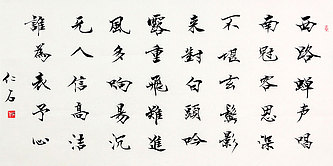 西路蝉声唱
南冠客思深
不堪玄鬓影
来对白头吟
露重飞难进
风多响易沉
无人信高洁
谁为表予心
仁石